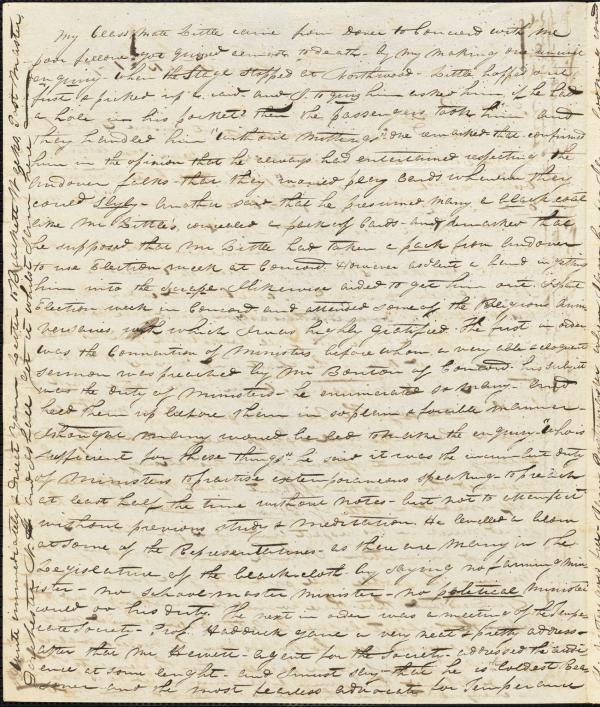 My Class mate Little came from dover to Concord with me
poor fellow got quized almost to death - by my making one
enquiry - when the Stage stopped at Northwood - Little hopped out
first & picked up a card - and I to quiz him asked him if he had
a hole in his pocket? then the passengers took him - and
they handled him "without Mittings" One remarked that confirmed
him in the opinion that he always had entertained respecting the
Andover folks - that they carried play Cards wherever they
could slyly - Another said that he presumed many a black coat
like Mr Little's, concealed a pack of Cards - and remarked that
he supposed that Mr Little had taken a pack from Andover
to use Election week at Concord. However as I lent a hand in getting
him into the scrape I likewise aided to get him out. I spent
Election week in Concord and attended some of the Religious Anni
versaries, with which I was highly gratified. The first in order
was the Convention of Ministers before whom a very able & eloquent
sermon was preached by Mr Bouton of Concord. his subject
was the duty of Ministers - he enumerated so many - and
held them up before them in so plain & forcible manner -
I thought many would be led to make the enquiry "who is
sufficient for these things" he said it was the incumbent duty
of Ministers to practise extemporaneous speaking - to preach
at least half the time without notes - but not to attempt it
without previous study & meditation. He levelled a blow
at some of the Representatives - as there are many in the
Legislature of the black cloth - by saying no farming Min
ister - no school master Minister - no political Minister
could do his duty. The next in order was a meeting of the Temper
ate Society - Prof. Hadduck gave a very neat & pretty address -
after that Mr Hewett - agent for the Society - addressed the audi
ence at some lenght - and I must say that he is boldest Rea
soner and the most fearless advocate for Temperance
Write immediately & direct your letter to Post Master